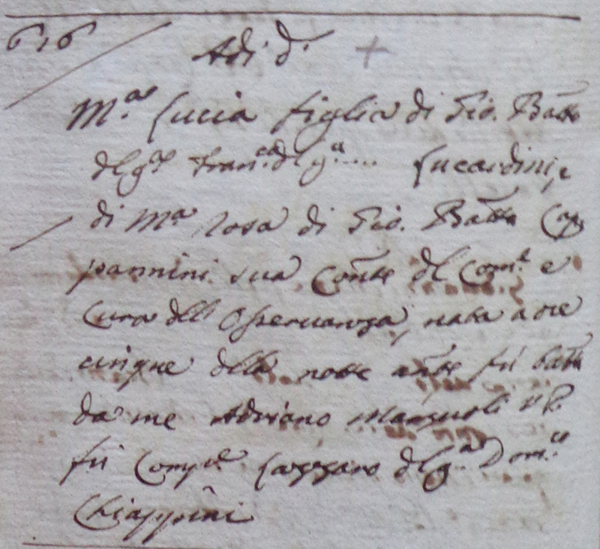 616
Adi d.o +
M.a Lucia figlia di Gio. Batta
del q.m Fran.co del q.m .... Lucardini, e
di M.a Rosa di Gio. Batta Cap
pannini sua Cons.te del Com.e e
Cura dell Osservanza, nata a ore
cinque della notte ante fù batt.a
da me Adriano
fù Comp.e del q.m Dom.co
Chiappini